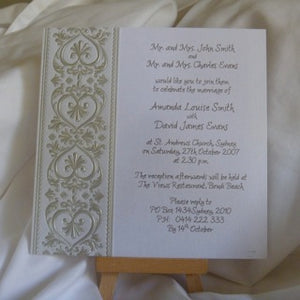 Mr. and Mrs. John Smith
and
Mr. and Mrs. Charles Evans
would like you to join them
to celebrate the marriage of
Amanda Louise Smith
with
David James Evans
at St. Andrews Church, Sydney
on Saturday, 27th October 2007
at 2:30 p.m.
The reception afterwards will be held at
The Views Restaurant, Bondi Beach
Please reply to
PO Box 1434 Sydney, 2010
P.H 0414 222 333
By 14th October